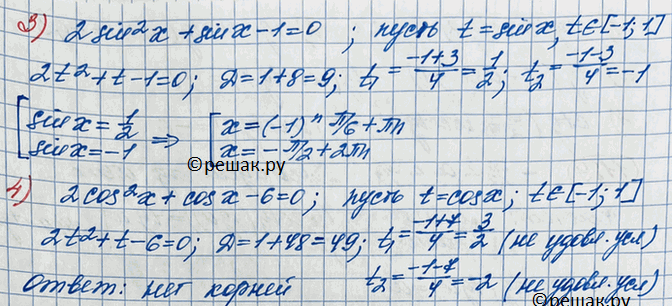 3) 2sin²x + sinx - 1 = 0 ; пусть t = sinx, t∈[-1; 1]
2t² + t - 1 = 0; Д = 1 + 8 = 9; t₁ = (-1+3)/4 = 1/2; t₂ = (-1-3)/4 = -1
[sinx = 1/2 => [x = (-1)ⁿ π/6 + πn
sinx = -1 x = -π/2 + 2πn
©решак.ру
4) 2cos²x + cosx - 6 = 0 ; пусть t = cosx ; t∈[-1; 1]
2t² + t - 6 = 0; Д = 1 + 48 = 49; t₁ = (-1+7)/4 = 3/2 (не удовл. усл)
Ответ: нет корней t₂ = (-1-7)/4 = -2 (не удовл. усл)
©решак.ру